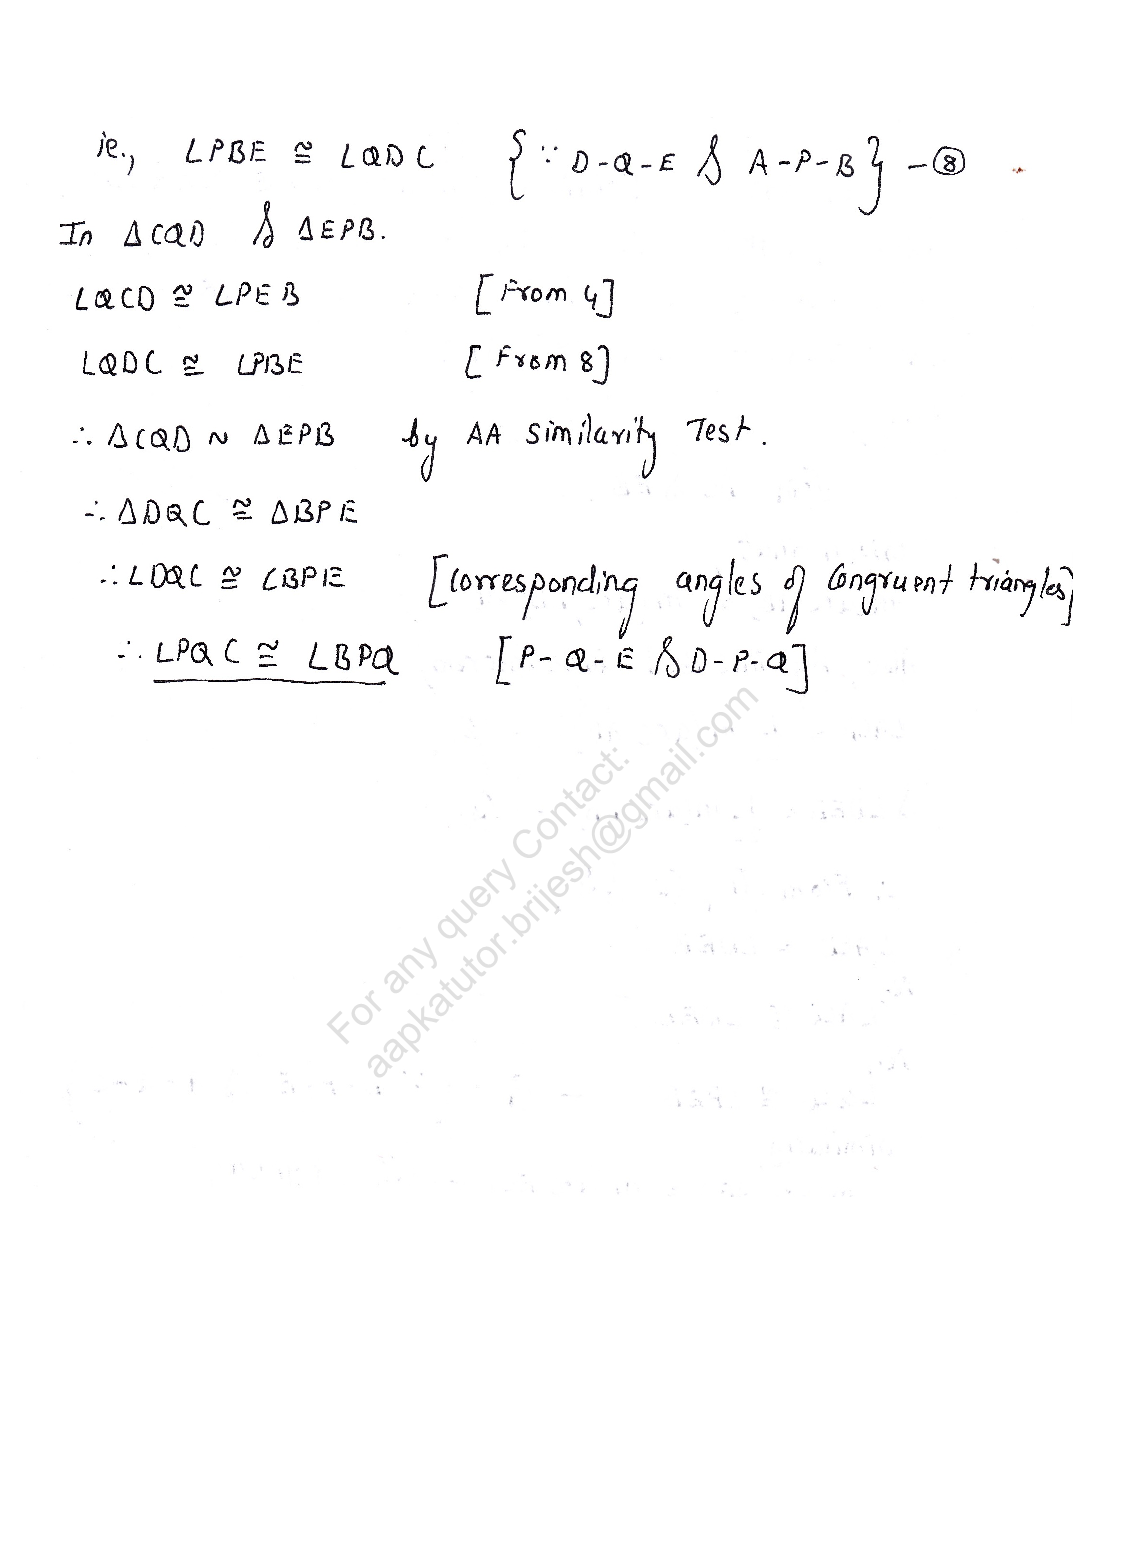 ie., ∠PBE ≅ ∠QDC { ∵ D-Q-E & A-P-B } - ⑧
In ΔCQD & ΔEPB.
∠QCD ≅ ∠PEB [From 4]
∠QDC ≅ ∠PBE [From 8]
∴ ΔCQD ~ ΔEPB by AA Similarity Test.
∴ ΔDQC ≅ ΔBPE
∴ ∠DQC ≅ ∠BPE [Corresponding angles of Congruent triangles]
∴ ∠PQC ≅ ∠BPQ [P-Q-E & D-P-Q]
For any query Contact:
aapkatutor.brijesh@gmail.com